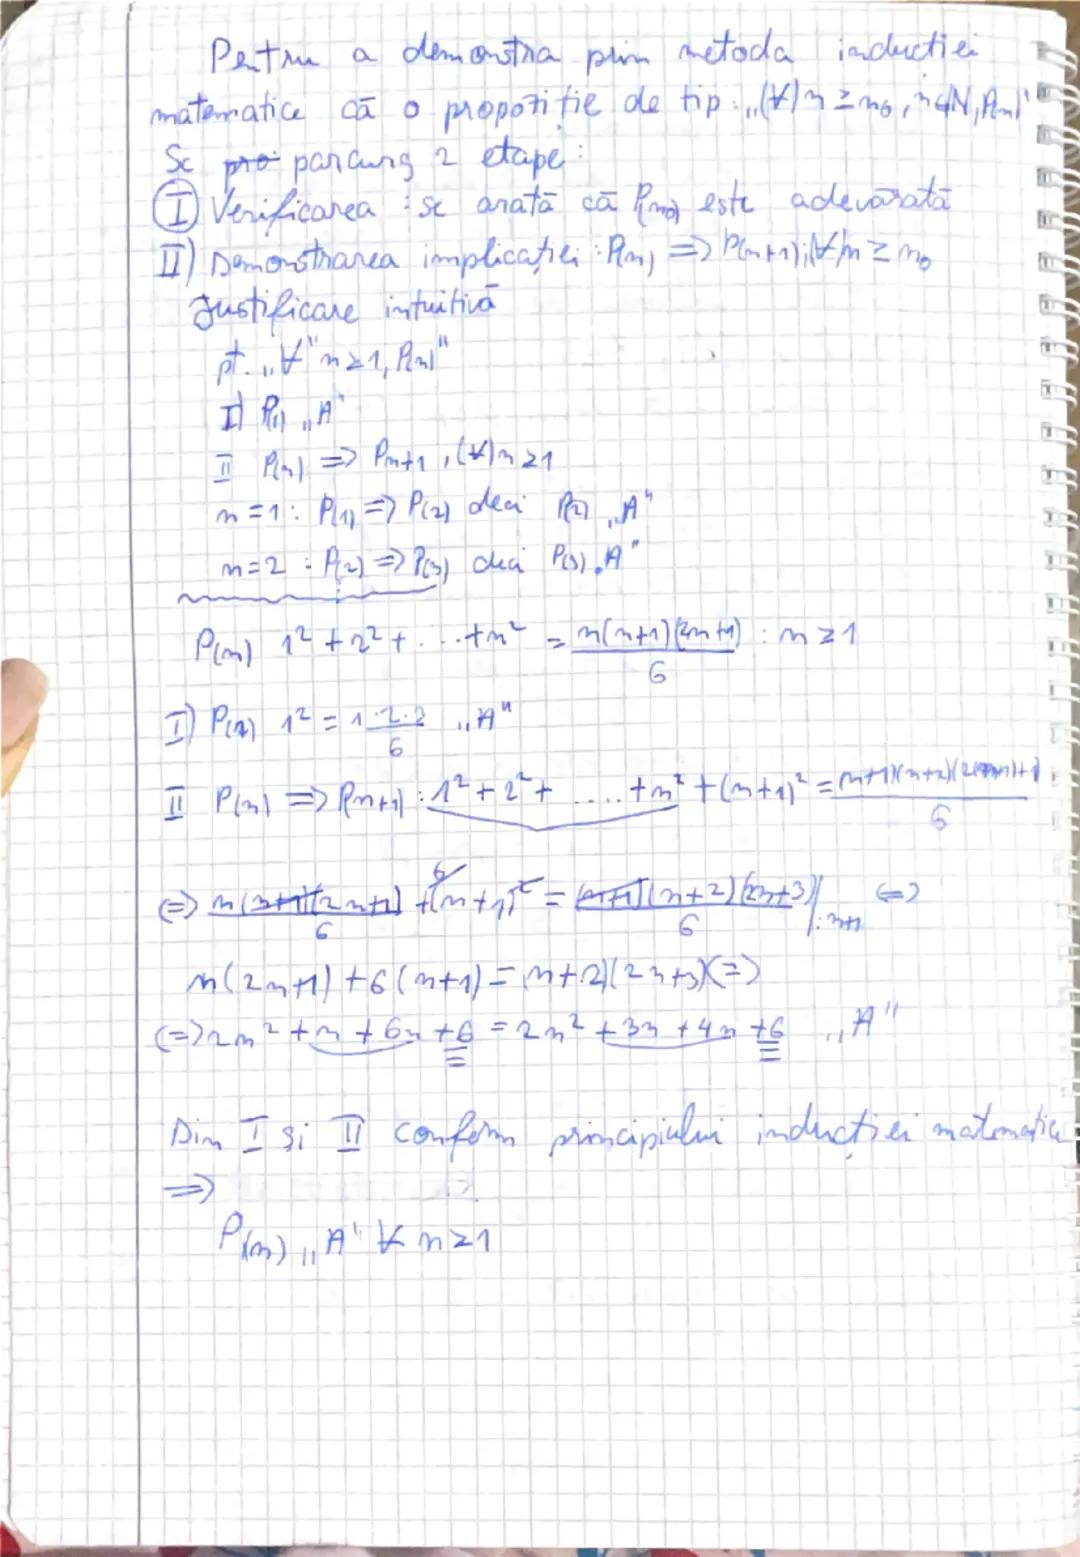 Pentru a demonstra prin metoda inductiei
matematice că o propoziție de tip: „(∀) n ≥ n₀, n∈N, P(n)"
Se parcurg 2 etape:
I) Verificarea : se arată că P(n₀) este adevărată
II) Demonstrarea implicației : P(n) => P(n+1), (∀) n ≥ n₀
Justificare intuitivă
pt. „∀" n ≥ 1, P(n)"
I) P(1) „A"
II P(n) => Pn+1, (∀) n ≥ 1
n = 1 : P(1) => P(2) deci P(2) „A"
n = 2 : P(2) => P(3) deci P(3) „A"
P(n) 1² + 2² + ... + n² = n(n+1)(2n+1)/6 : n ≥ 1
I) 1² = 1·2·3/6 „A"
II P(n) => P(n+1) : 1² + 2² + .... + n² + (n+1)² = (n+1)(n+2)(2(n+1)+1)/6
(=) n(n+1)(2n+1)/6 + ⁶⁾(n+1)² = (n+1)(n+2)(2n+3)/6 | : n+1 (=)
n(2n+1) + 6(n+1) = (n+2)(2n+3) (=)
(=) 2n² + n + 6n + 6 = 2n² + 3n + 4n + 6 „A"
Din I și II conform principiului inducției matematice
=>
P(n) „A" ∀ n ≥ 1